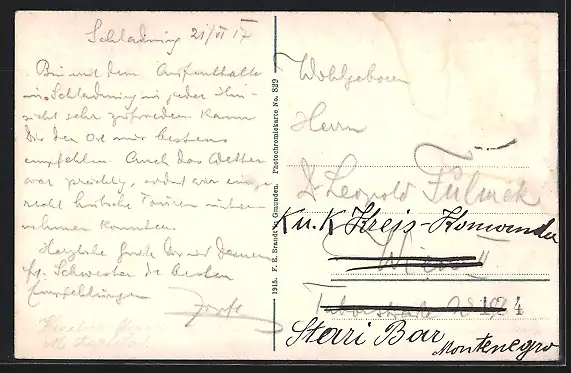 Schladming 21/VI 17
Bin mit dem Aufenthalte
in Schladming in jeder Hin-
sicht sehr zufrieden. Kann
Dir den Ort nur bestens
empfehlen. Auch das Wetter
war prächtig, sodaß wir
recht hübsche Touren unter-
nehmen konnten.
Herzliche Grüße
Schwester die besten
Empfehlungen
1915. F. E. Brandt in Gmunden. Photochromiekarte No. 839
Wohlgeboren
Herrn
Dr Leopold
K u. K Kreis-Komando
Wien II
124
Stari Bar
Montenegro